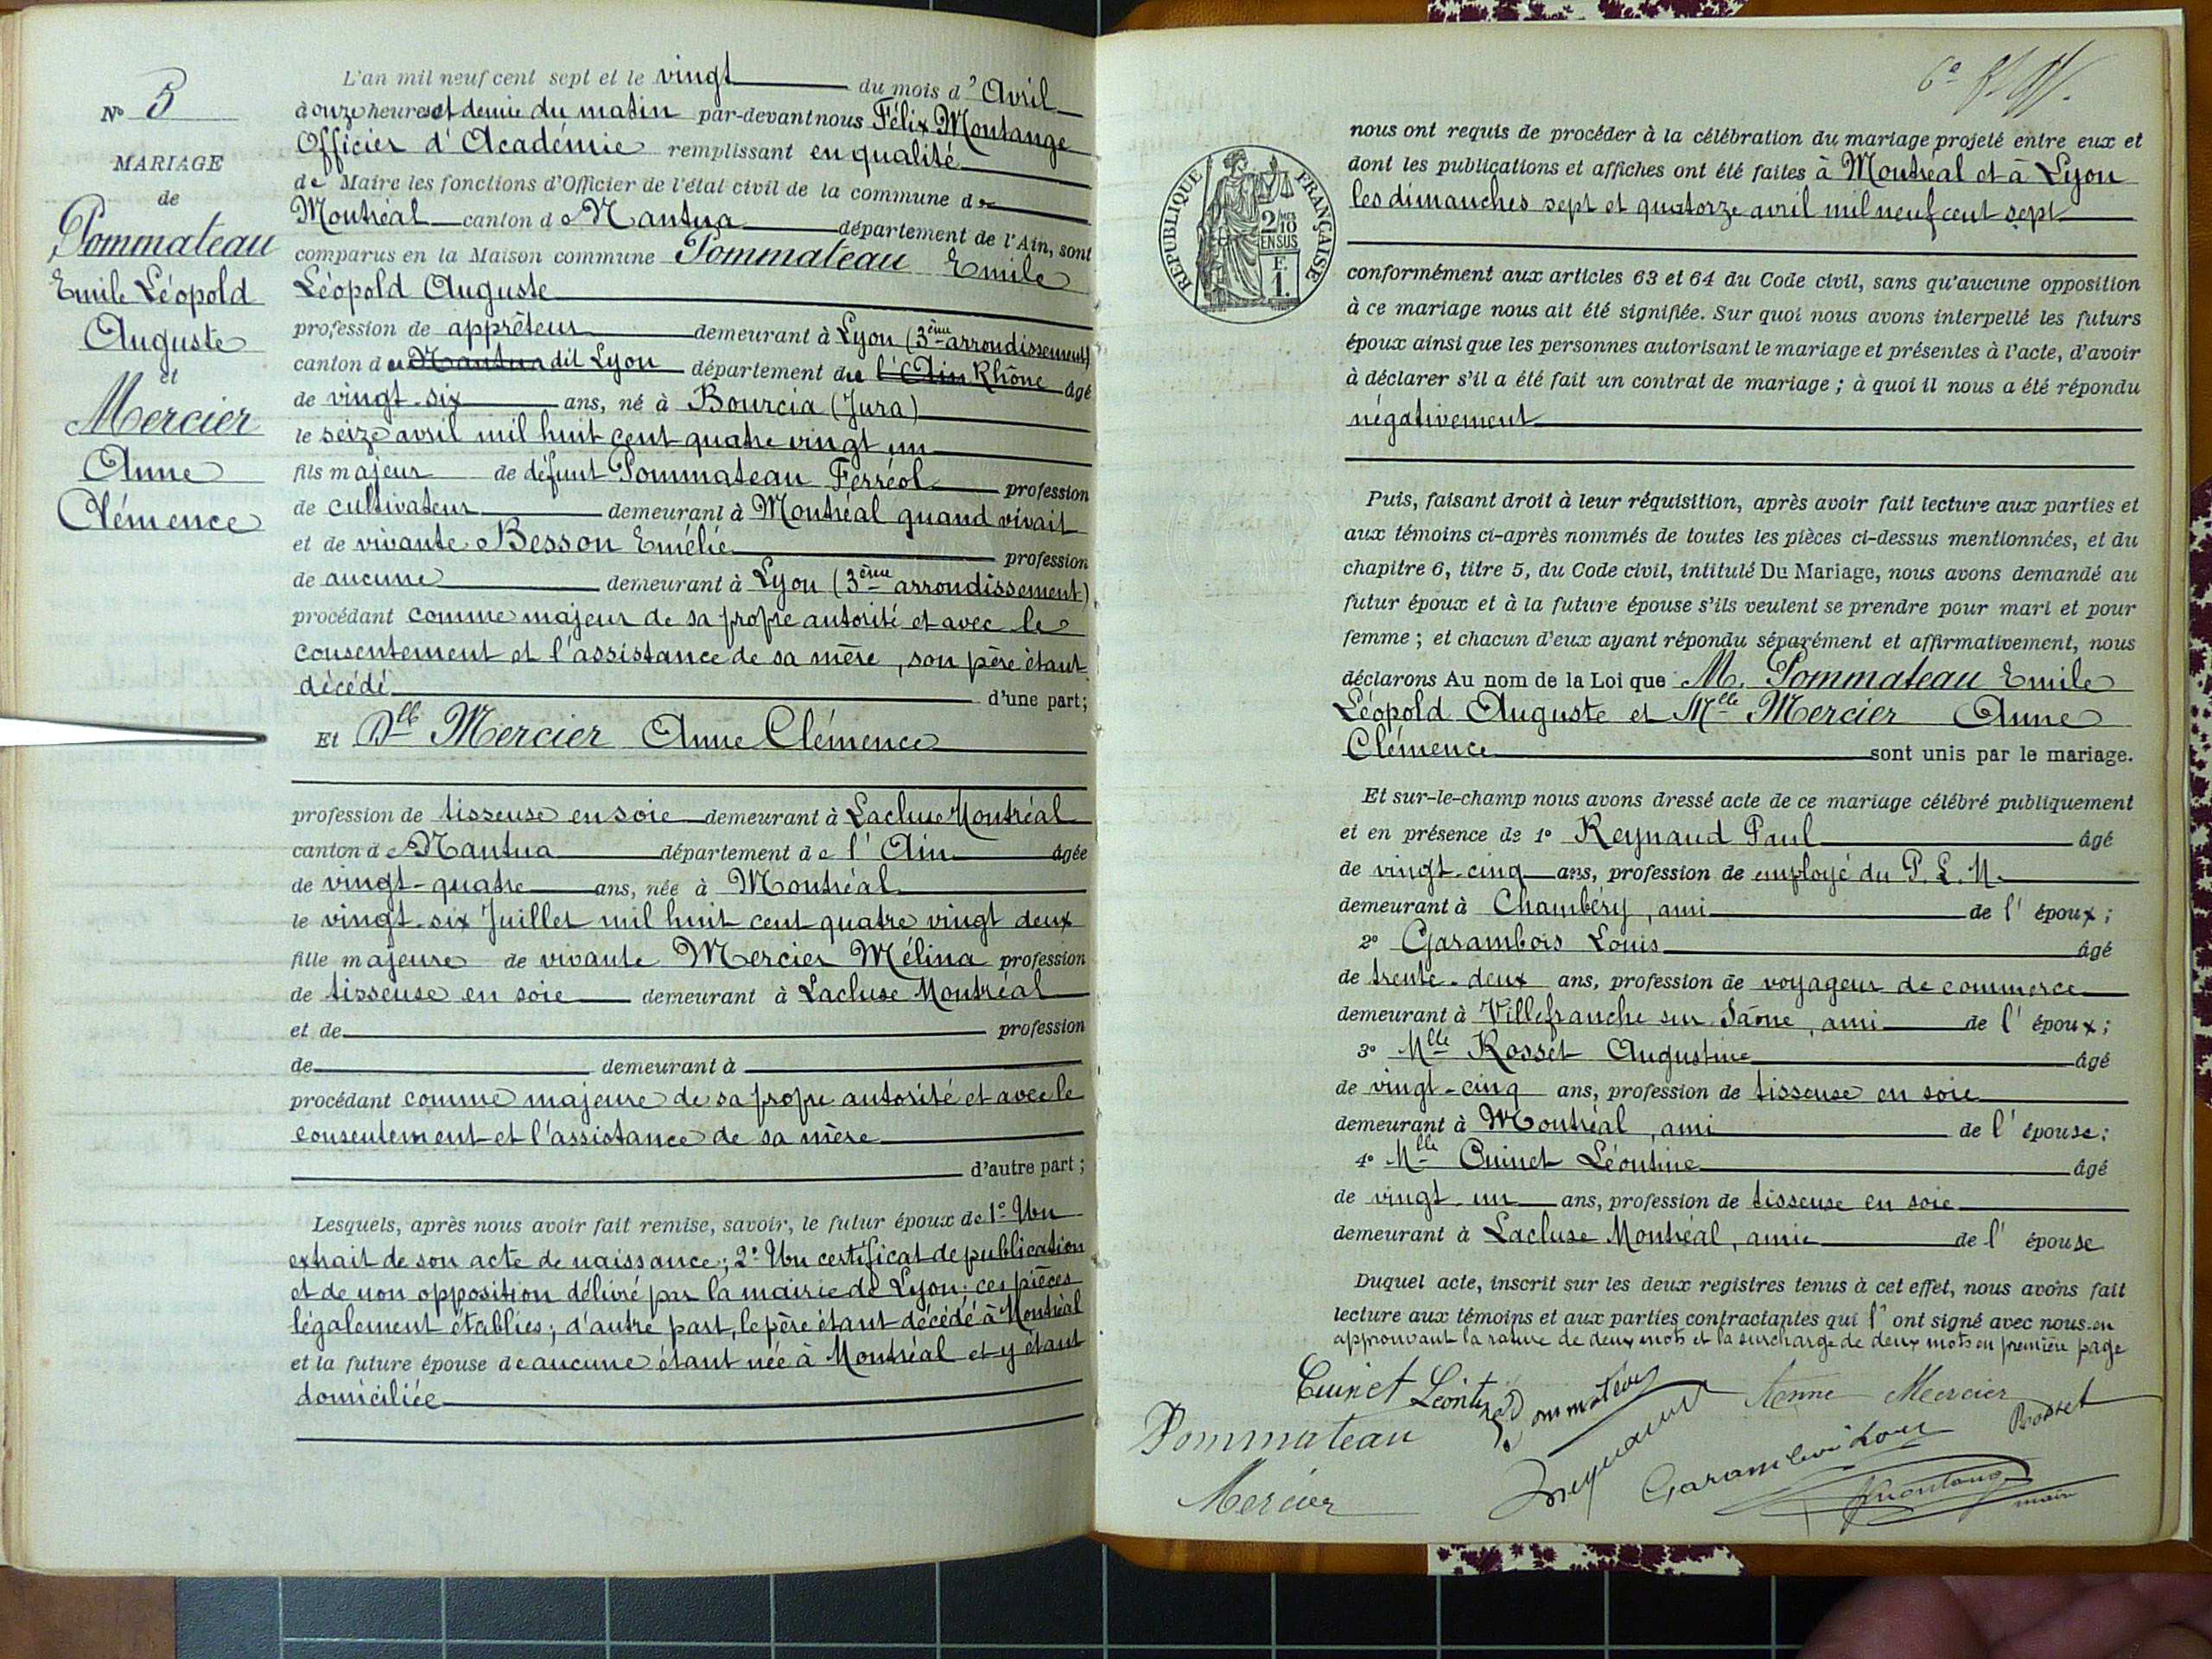 N° 5
MARIAGE
de
Pommateau
Emile Léopold
Auguste
et
Mercier
Anne
Clémence
L'an mil neuf cent sept et le vingt du mois d' Avril
à onze heures et demie du matin par-devant nous Félix Montange
Officier d'Académie remplissant en qualité
de Maire les fonctions d'Officier de l'état civil de la commune de
Montréal canton de Nantua département de l'Ain, sont
comparus en la Maison commune Pommateau Emile
Léopold Auguste
profession de apprêteur demeurant à Lyon (3ème arrondissement)
canton de Nantua dit Lyon département du l'Ain Rhône âgé
de vingt-six ans, né à Bourcia (Jura)
le seize avril mil huit cent quatre vingt un
fils majeur de défunt Pommateau Ferréol profession
de cultivateur demeurant à Montréal quand vivait
et de vivante Besson Emélie profession
de aucune demeurant à Lyon (3ème arrondissement)
procédant comme majeur de sa propre autorité et avec le
consentement et l'assistance de sa mère, son père étant
décédé d'une part;
Et Dlle Mercier Anne Clémence
profession de tisseuse en soie demeurant à Lacluse Montréal
canton de Nantua département de l'Ain âgée
de vingt-quatre ans, née à Montréal
le vingt-six Juillet mil huit cent quatre vingt deux
fille majeure de vivante Mercier Mélina profession
de tisseuse en soie demeurant à Lacluse Montréal
et de profession
de demeurant à
procédant comme majeure de sa propre autorité et avec le
consentement et l'assistance de sa mère
d'autre part;
Lesquels, après nous avoir fait remise, savoir, le futur époux de 1° Un
extrait de son acte de naissance; 2° Un certificat de publication
et de non opposition délivré par la mairie de Lyon; ces pièces
légalement établies; d'autre part, le père étant décédé à Montréal
et la future épouse de aucune étant née à Montréal et y étant
domiciliée
6e
REPUBLIQUE FRANÇAISE
2/10
EN SUS
F.
1.
nous ont requis de procéder à la célébration du mariage projeté entre eux et
dont les publications et affiches ont été faites à Montréal et à Lyon
les dimanches sept et quatorze avril mil neuf cent sept
conformément aux articles 63 et 64 du Code civil, sans qu'aucune opposition
à ce mariage nous ait été signifiée. Sur quoi nous avons interpellé les futurs
époux ainsi que les personnes autorisant le mariage et présentes à l'acte, d'avoir
à déclarer s'il a été fait un contrat de mariage; à quoi il nous a été répondu
négativement
Puis, faisant droit à leur réquisition, après avoir fait lecture aux parties et
aux témoins ci-après nommés de toutes les pièces ci-dessus mentionnées, et du
chapitre 6, titre 5, du Code civil, intitulé Du Mariage, nous avons demandé au
futur époux et à la future épouse s'ils veulent se prendre pour mari et pour
femme; et chacun d'eux ayant répondu séparément et affirmativement, nous
déclarons Au nom de la Loi que M. Pommateau Emile
Léopold Auguste et Mlle Mercier Anne
Clémence sont unis par le mariage.
Et sur-le-champ nous avons dressé acte de ce mariage célébré publiquement
et en présence de 1° Reynaud Paul âgé
de vingt-cinq ans, profession de employé du P. L. M.
demeurant à Chambéry, ami de l'époux;
2° Garambois Louis âgé
de trente-deux ans, profession de voyageur de commerce
demeurant à Villefranche sur Saône, ami de l'époux;
3° Mlle Rosset Augustine âgé
de vingt-cinq ans, profession de tisseuse en soie
demeurant à Montréal, ami de l'épouse;
4° Mlle Cuinet Léontine âgé
de vingt-un ans, profession de tisseuse en soie
demeurant à Lacluse Montréal, amie de l'épouse
Duquel acte, inscrit sur les deux registres tenus à cet effet, nous avons fait
lecture aux témoins et aux parties contractantes qui l'ont signé avec nous en
approuvant la rature de deux mots et la surcharge de deux mots en première page
Cuinet Léontine Pommateau Anne Mercier
Pommateau Garambois Louis Rosset
Mercier Montange maire